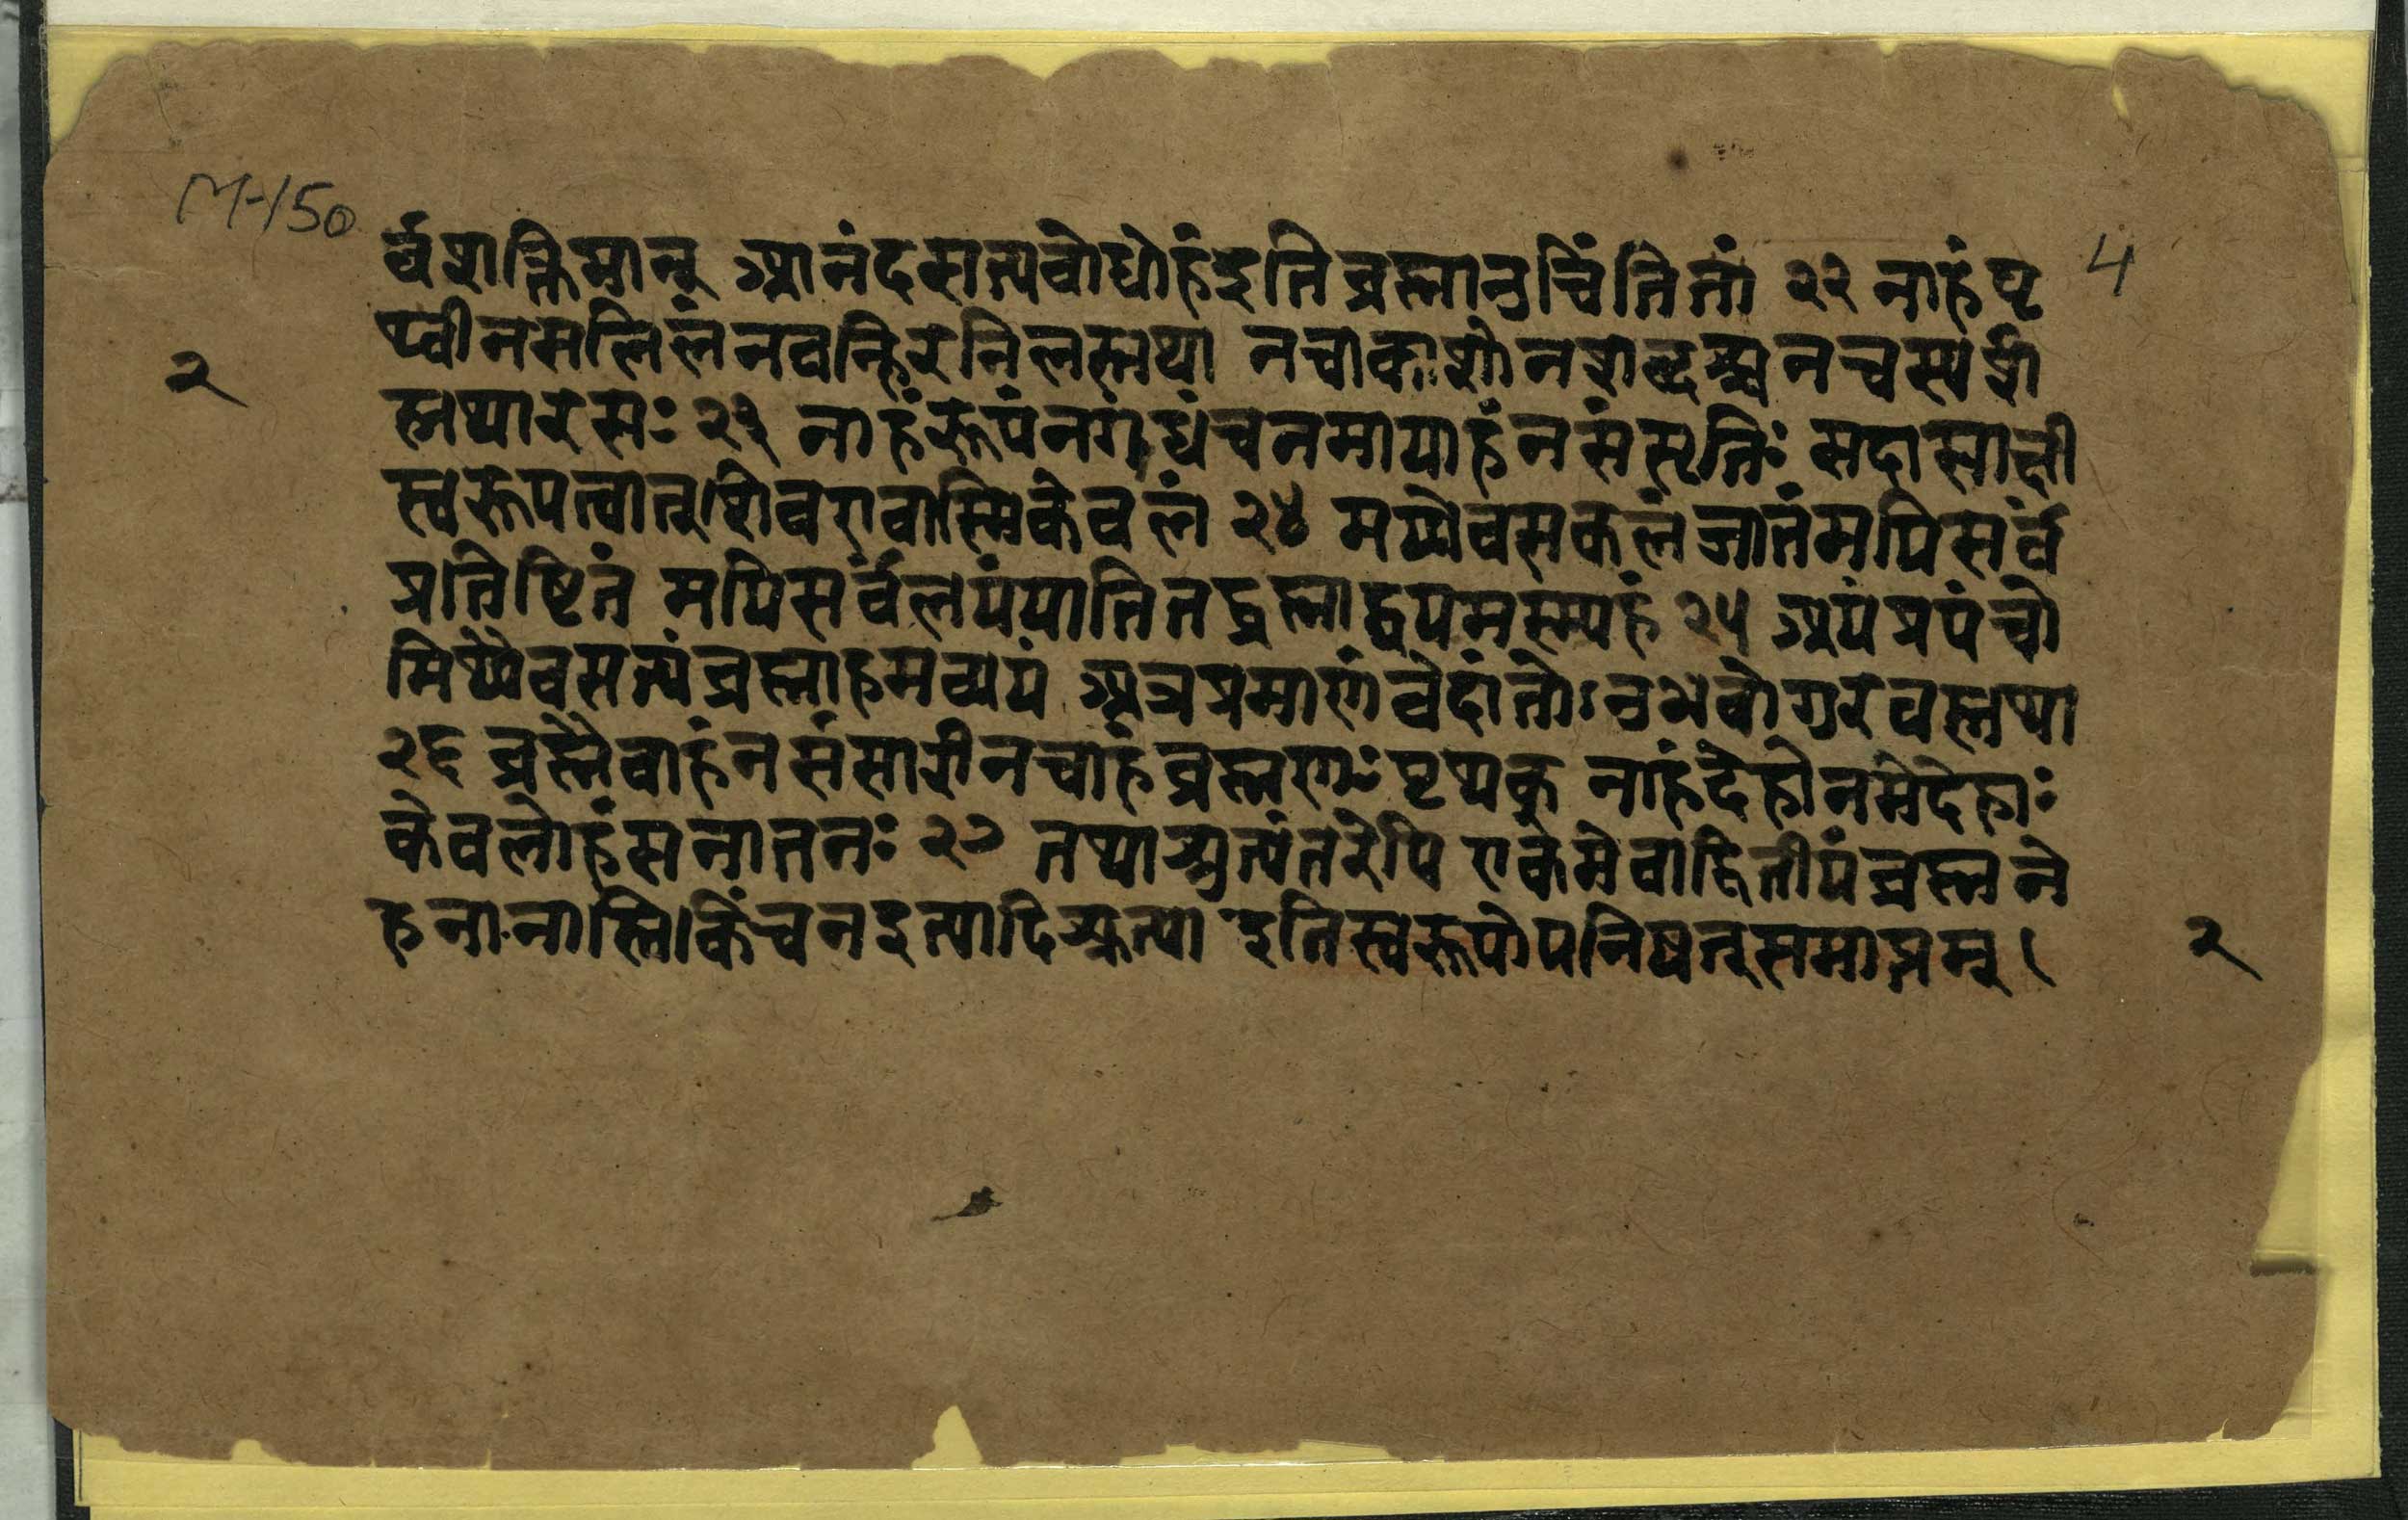 M-150
4
र्वशक्तिमान् आनंदसत्यबोधोहंइतिब्रह्मानुचिंतितां २२ नाहंपृ
थ्वीनसलिलंनवन्हिरनिलस्तथा नचाकाशोनशब्दश्चनचस्पर्श
२
स्तथारसः २३ नाहंरूपंनगंधंचनमायाहंनसंसृतिः सदासाक्षी
स्वरूपत्वात् शिवएवास्मिकेवलं २४ मय्येवसकलंजातंमयिसर्वं
प्रतिष्टितं मयिसर्वंलयंयातितद्ब्रह्माद्वयमस्म्यहं २५ अयंप्रपंचो
मिथ्यैवसत्यंब्रह्माहमव्ययं अत्रप्रमाणंवेदांतोऽनुभवोगुरवस्तथा
२६ ब्रह्मैवाहंनसंसारीनचाहंब्रह्मणः पृथक् नाहंदेहोनमेदेहाः
केवलोहंसनातनः २७ तथाश्रुत्यंतरेपि एकमेवाद्वितीयंब्रह्म ने
हनानास्ति।किंचनइत्यादिश्रुत्या इतिस्वरूपोपनिषत्समाप्तम् ।
२